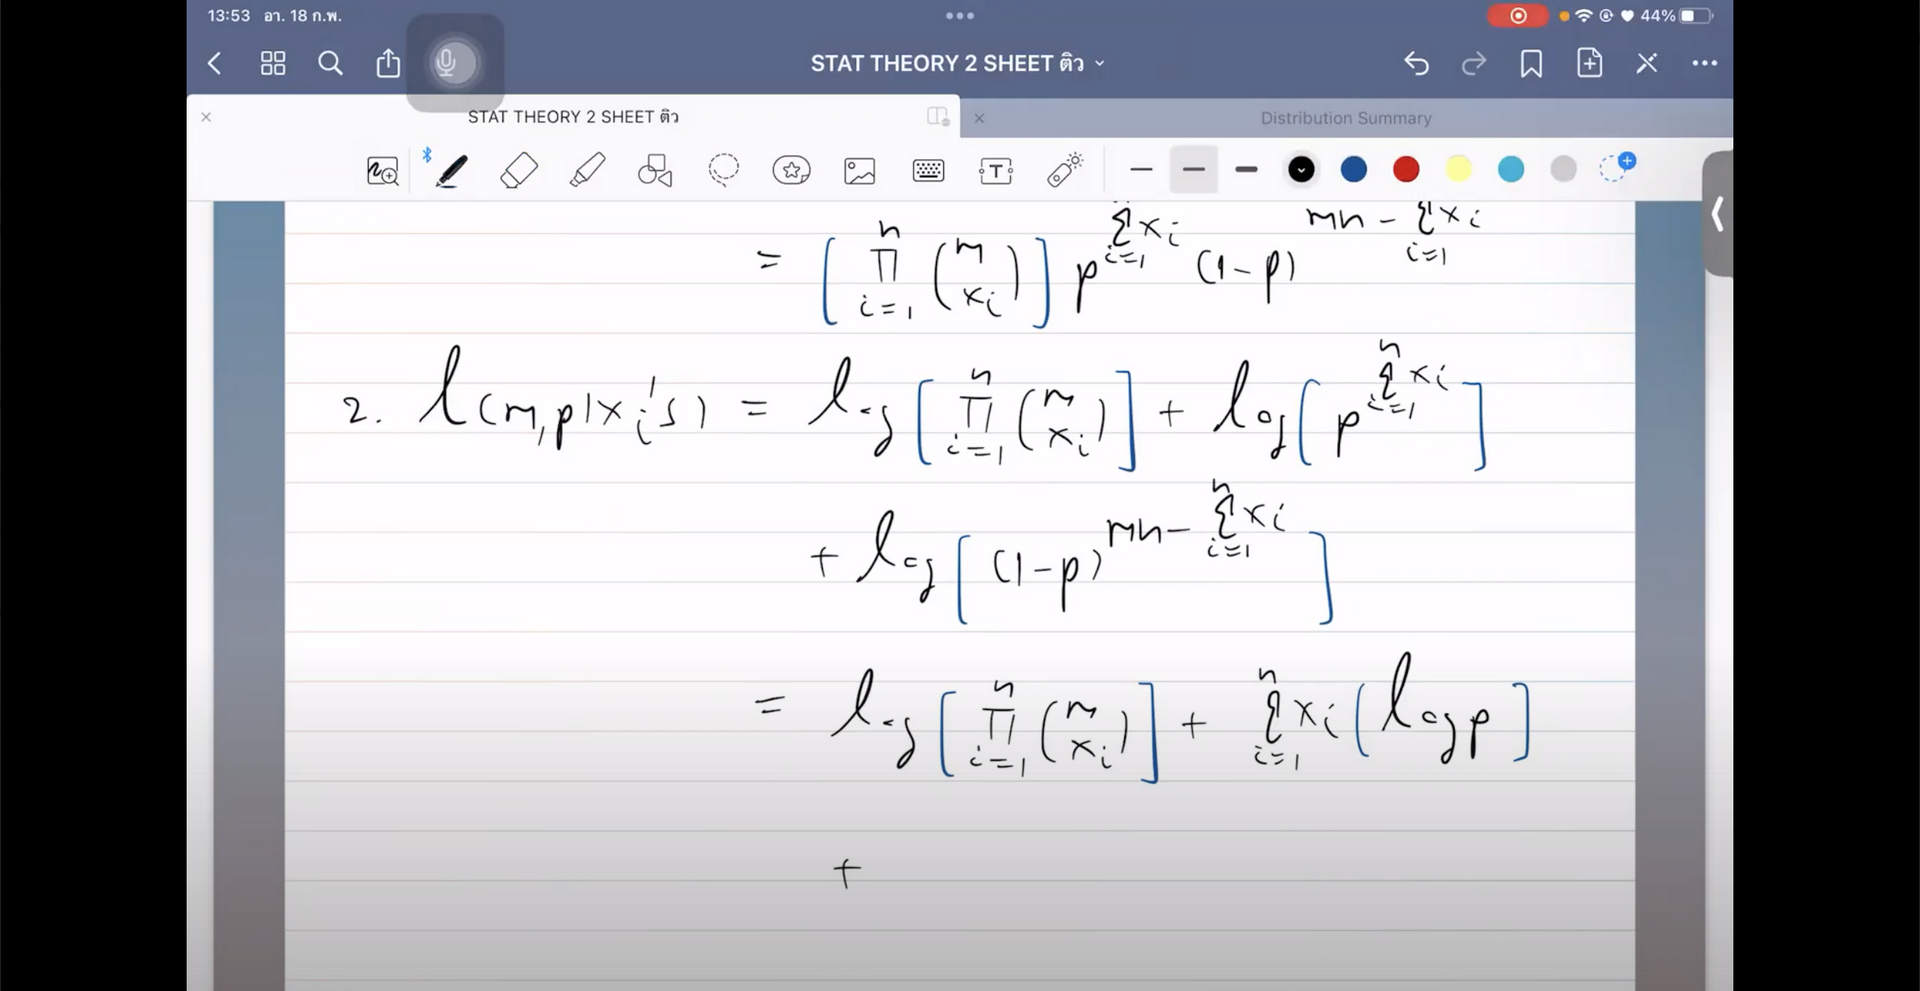 13:53 อา. 18 ก.พ. 44%
STAT THEORY 2 SHEET ติว
STAT THEORY 2 SHEET ติว Distribution Summary
T
= [ ∏_{i=1}^{n} (m x_i) ] p^{∑_{i=1} x_i} (1-p)^{mn - ∑_{i=1} x_i}
2. l(m,p|x_i's) = log [ ∏_{i=1}^{n} (m x_i) ] + log [ p^{∑_{i=1}^{n} x_i} ]
+ log [ (1-p)^{mn - ∑_{i=1}^{n} x_i} ]
= log [ ∏_{i=1}^{n} (m x_i) ] + ∑_{i=1}^{n} x_i [ log p ]
+